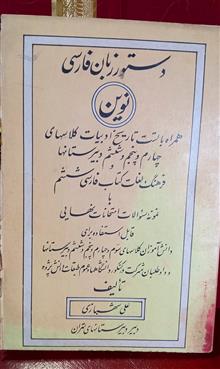 دستور زبان فارسی
نوین
همراه با لیست تاریخ ادبیات کلاسهای
چهارم و پنجم و ششم دبیرستانها
و
فرهنگ لغات کتاب فارسی ششم
با
نمونه سئوالات امتحانات نهائی
قابل استفاده برای
دانش آموزان کلاسهای سوم و چهارم و پنجم و ششم دبیرستانها
و داوطلبان شرکت در کنکور دانشگاهها و عموم طبقات دانش پژوه
تألیف
علی شهبازی
دبیر دبیرستانهای تهران